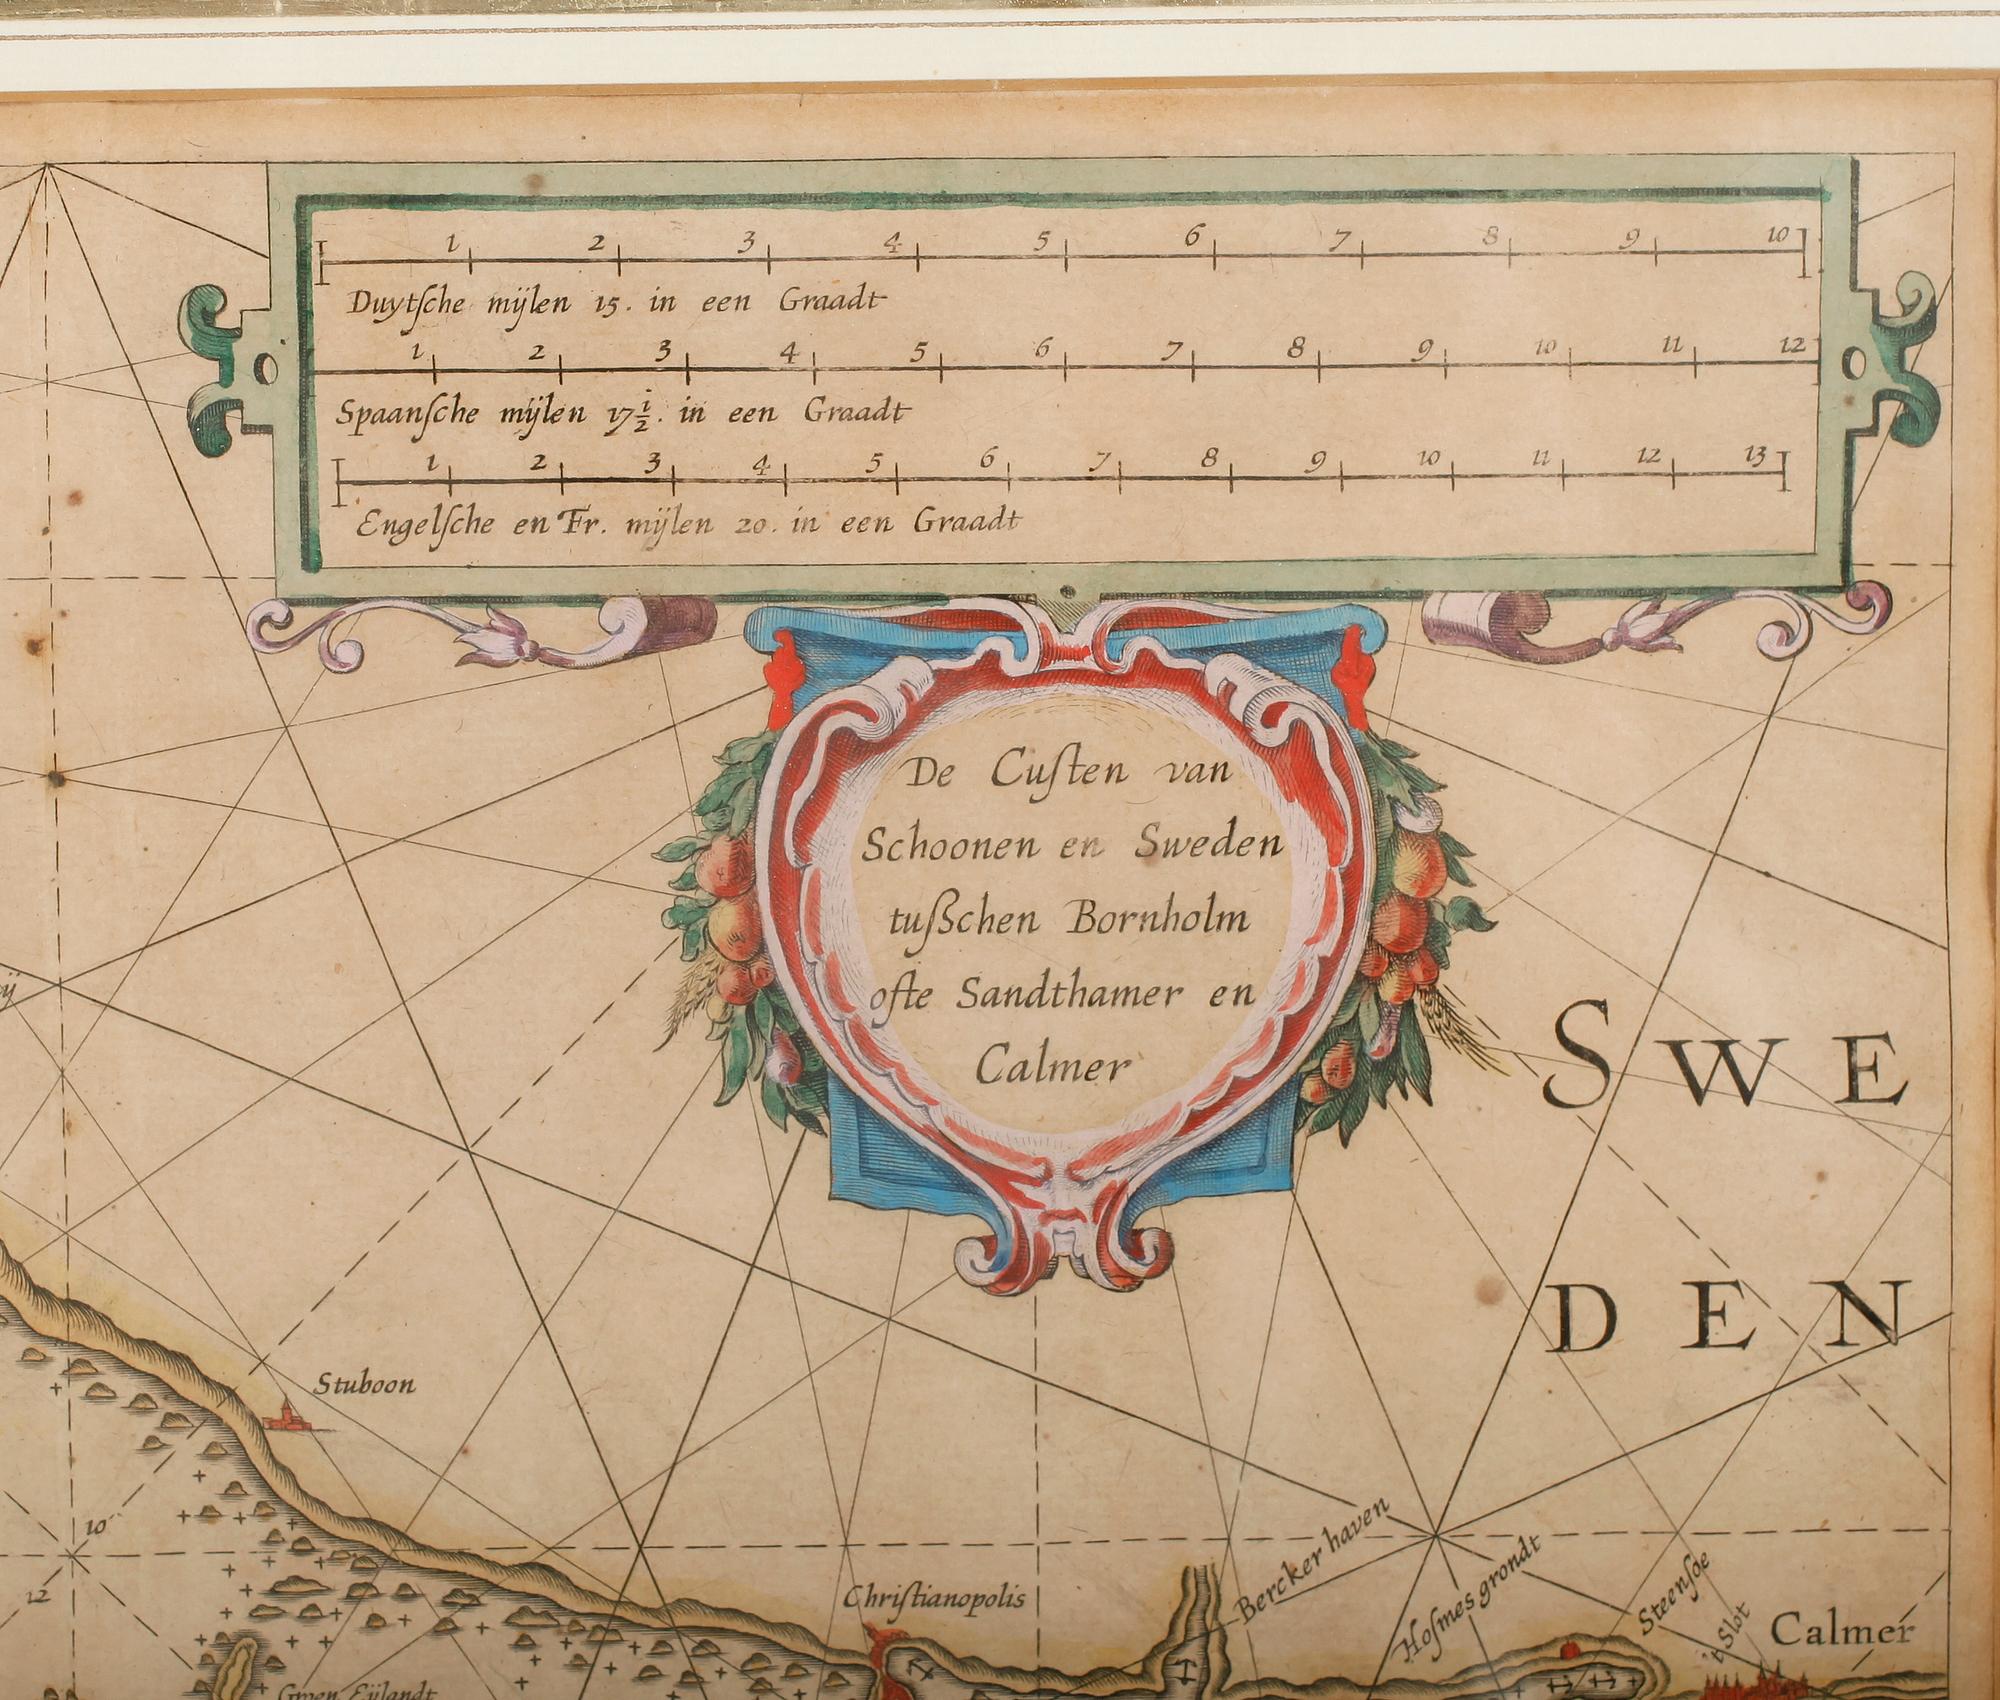 1 2 3 4 5 6 7 8 9 10
Duytſche mijlen 15. in een Graadt
1 2 3 4 5 6 7 8 9 10 11 12
Spaanſche mijlen 17 1/2. in een Graadt
1 2 3 4 5 6 7 8 9 10 11 12 13
Engelſche en Fr. mijlen 20. in een Graadt
De Cuſten van
Schoonen en Sweden
tußchen Bornholm
ofte Sandthamer en
Calmer
SWE
DEN
Stuboon
10
12
Chriſtianopolis
Bercker haven
Hoſmes grondt
Steenſoe
't Slot
Calmer